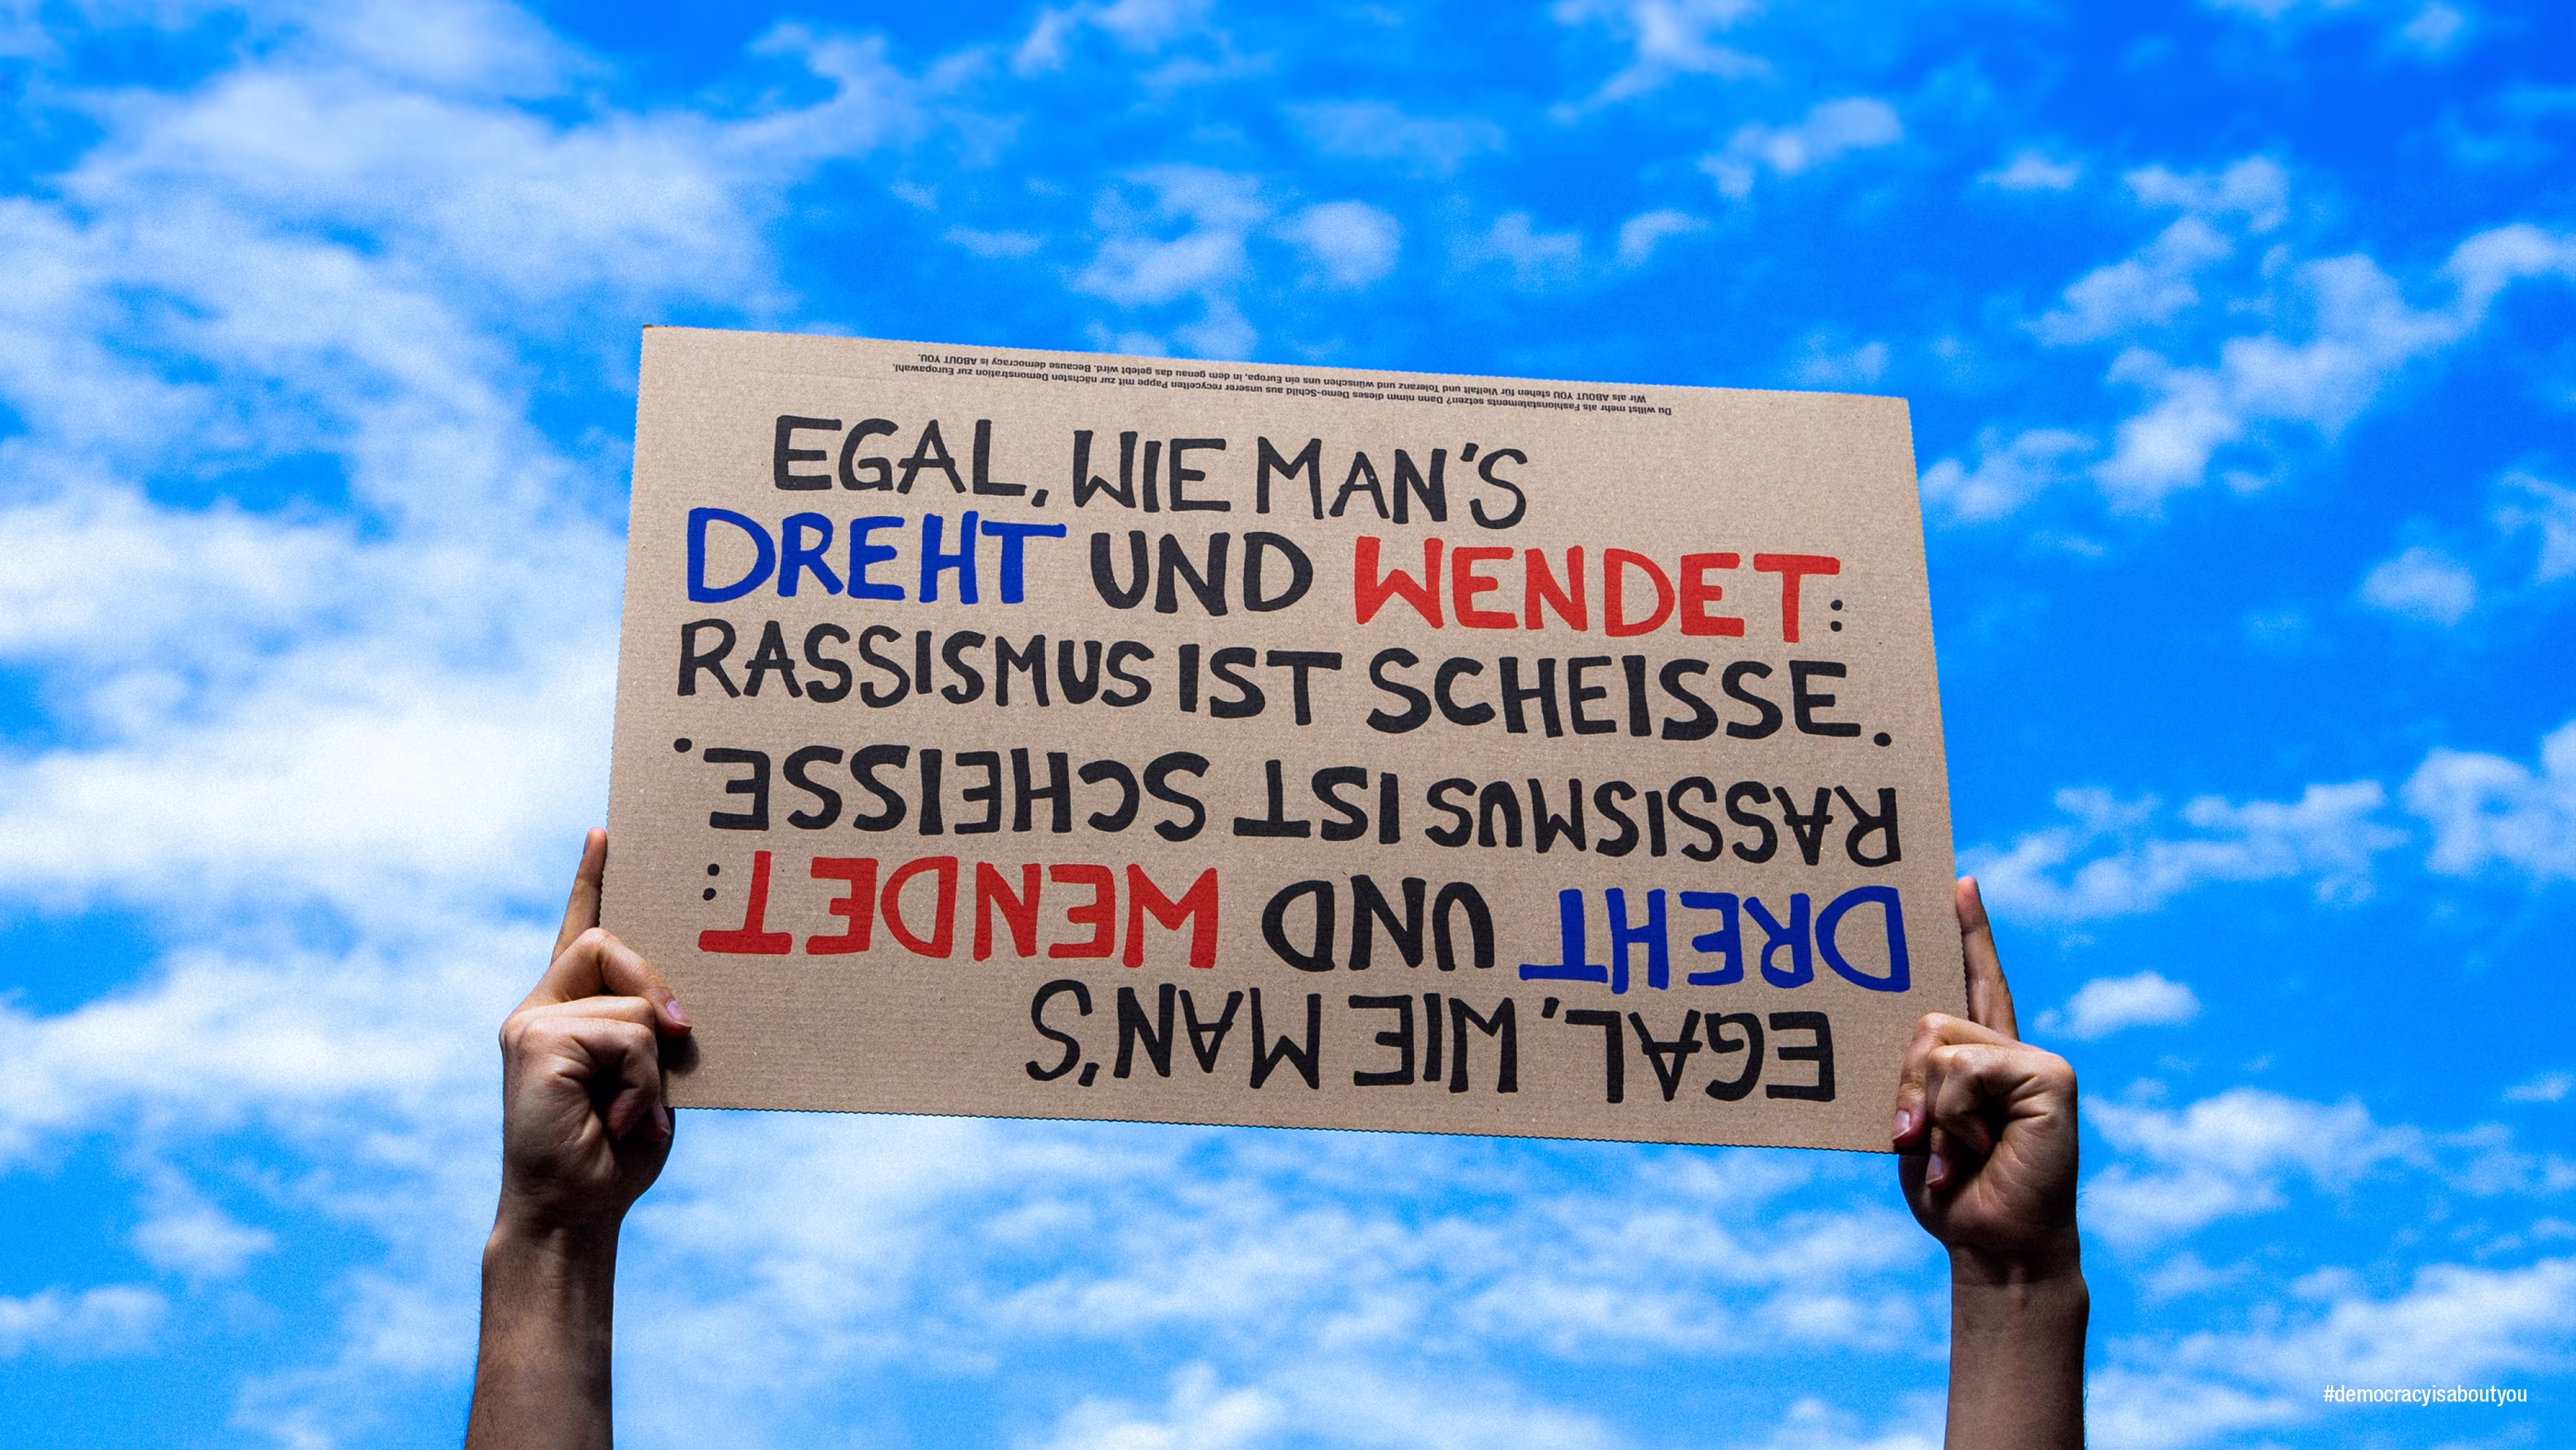 Du willst mehr als Fashionstatements setzen? Dann nimm dieses Demo-Schild aus unserer recycelten Pappe mit zur nächsten Demonstration zur Europawahl.
Wir als ABOUT YOU stehen für Vielfalt und Toleranz und wünschen uns ein Europa, in dem genau das gelebt wird. Because democracy is ABOUT YOU.
EGAL, WIE MAN'S
DREHT UND WENDET:
RASSISMUS IST SCHEISSE.
EGAL, WIE MAN'S
DREHT UND WENDET:
RASSISMUS IST SCHEISSE.
#democracyisaboutyou